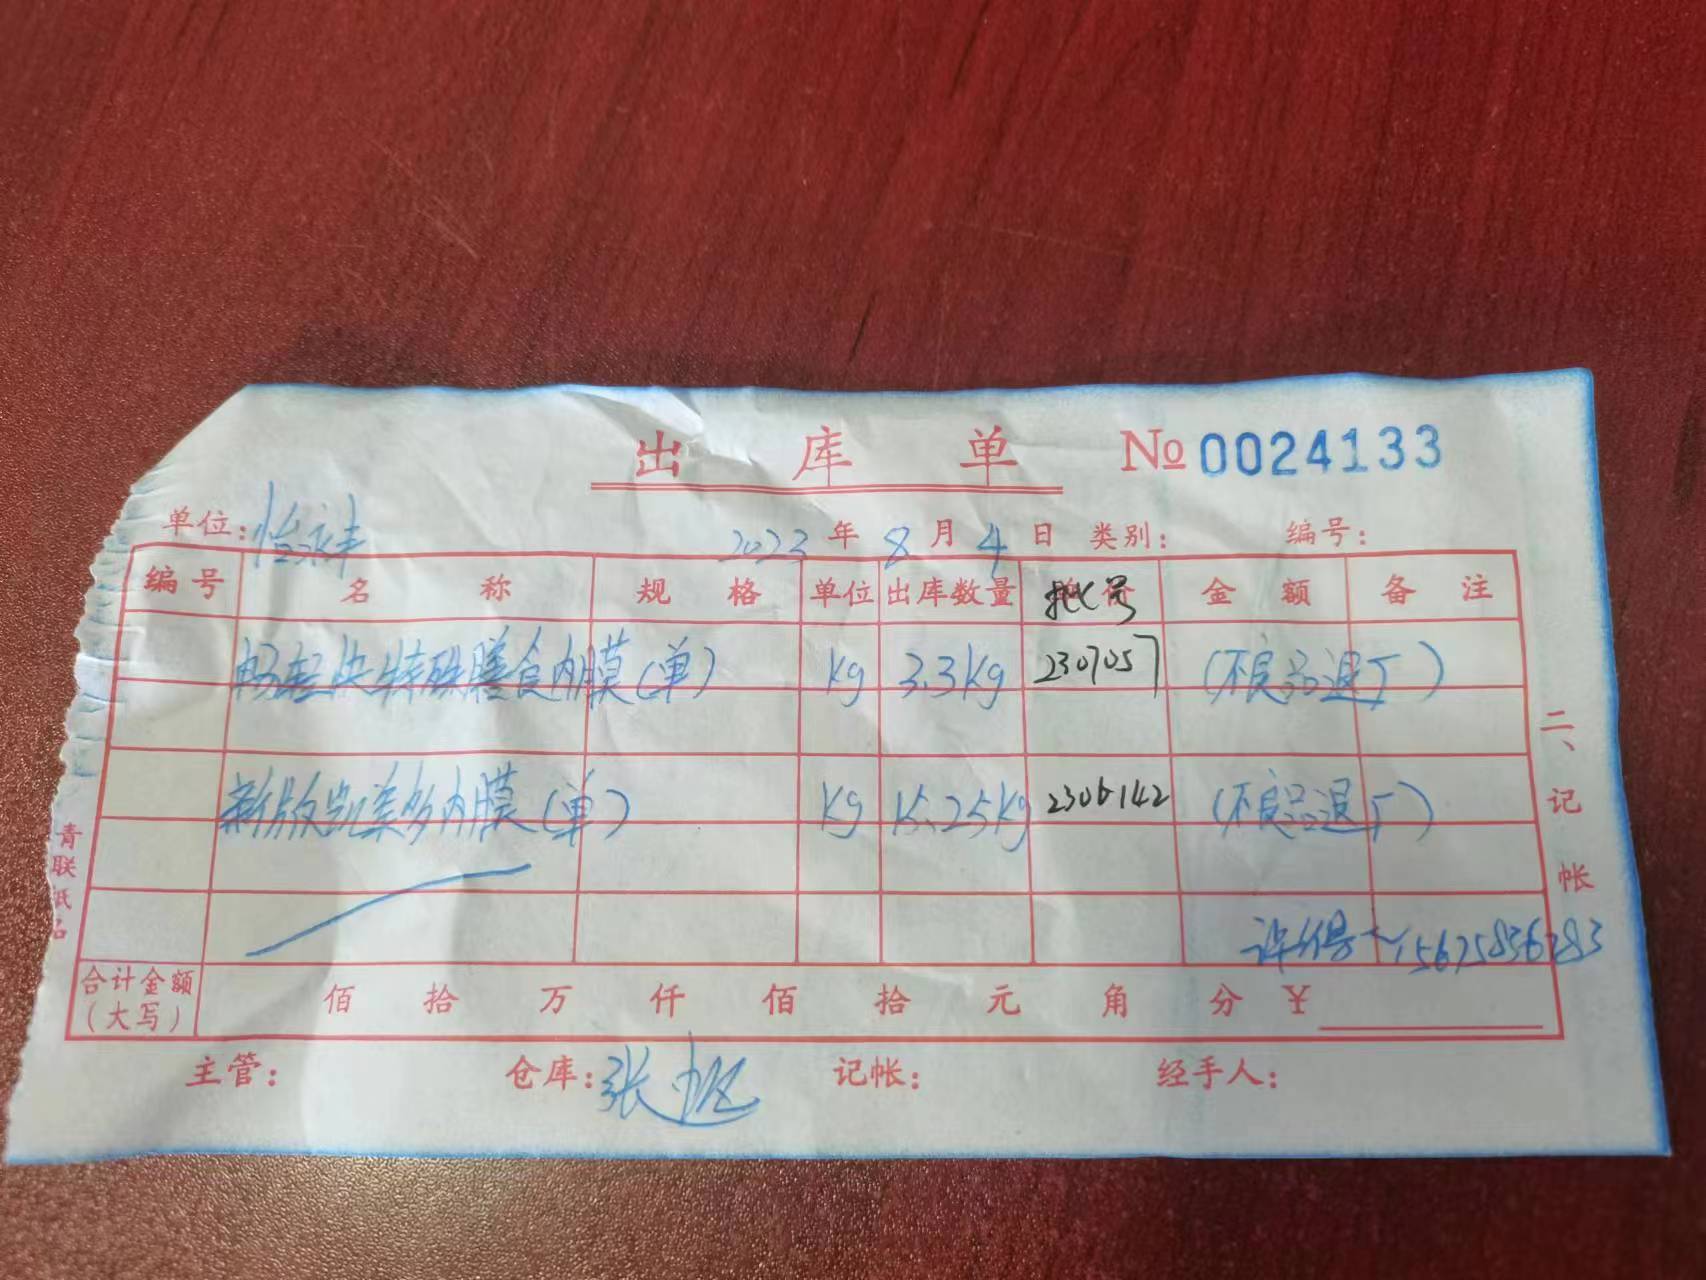 出库单 № 0024133
单位:怡永丰 2023年8月4日 类别: 编号:
编号 名称 规格 单位 出库数量 批号 金额 备注
畅轻快特殊膳食内膜(单) kg 3.3kg 2307057 (不良品退厂)
新版凯美多内膜(单) kg 15.25kg 2306142 (不良品退厂)
15675836283
合计金额 佰拾万仟佰拾元角分¥
(大写)
主管: 仓库:张 记帐: 经手人:
二、记帐
青联纸品